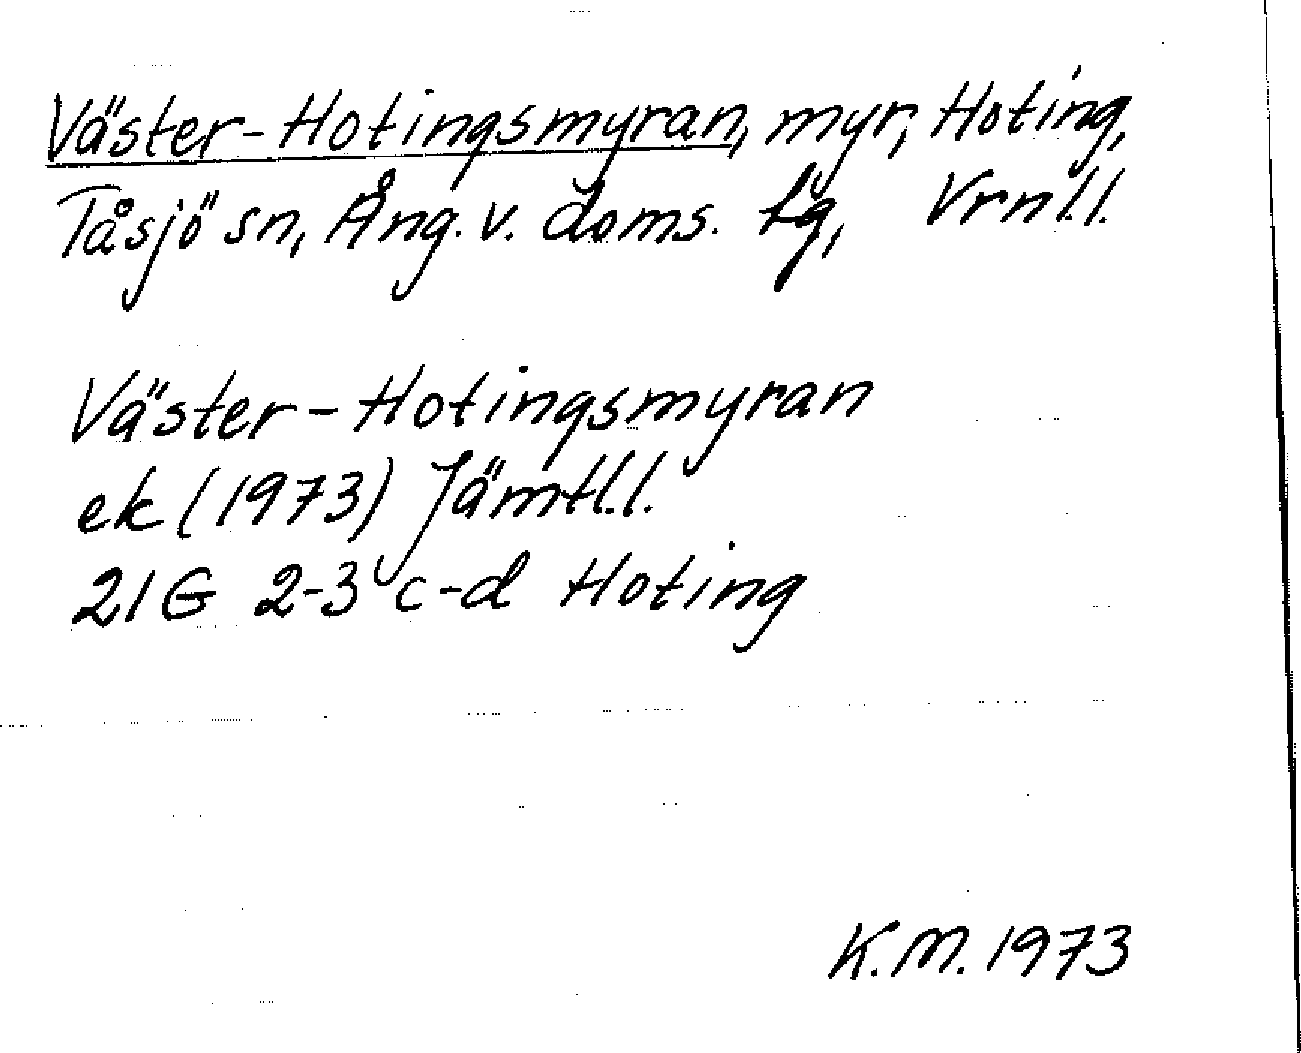 Väster-Hotingsmyran, myr, Hoting,
Tåsjö sn, Ång. v. doms. lg, Vrnl.l.
Väster-Hotingsmyran
ek (1973) Jämtl.l.
21G 2-3 c-d Hoting
K.M. 1973